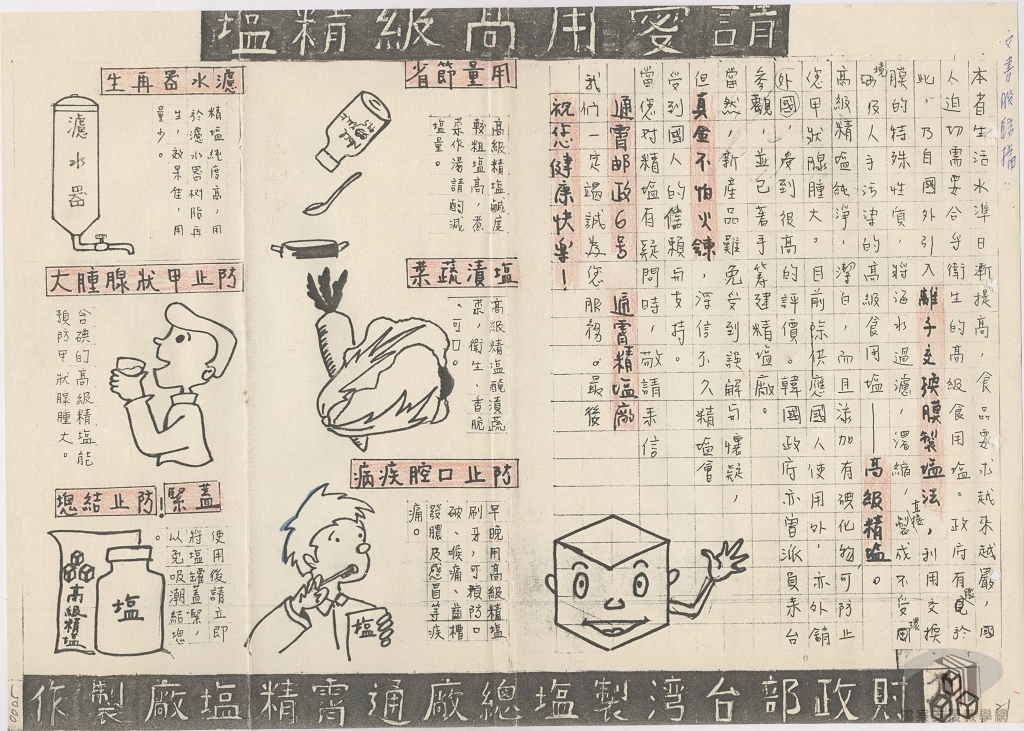 文書股歸檔
請愛用高級精塩
本省生活水準日漸提高，食品要求越來越嚴，國
人迫切需要合乎衛生的高級食用塩。政府有鑑於
此，乃自國外引入離子交換膜製塩法，利用交換
膜的特殊性質，將海水過濾，濃縮，直接製成不受環
境及人手污染的高級食用塩——高級精塩。
高級精塩純淨，潔白，而且添加有碘化物可防止
您甲狀腺腫大。目前除供應國人使用外，亦外銷
外國，受到很高的評價。韓國政府亦曾派員來台
參觀，並已著手籌建精塩廠。
當然，新產品難免受到誤解与懷疑，
但真金不怕火鍊，深信不久精塩會
受到國人的信賴与支持。
當您对精塩有疑問時，敬請來信
通霄邮政6号 通霄精塩廠
我們一定竭誠為您服務。最後
祝您健康快樂！
用量節省
高級精塩鹹度
較粗塩高，煮
菜作湯請酌減
塩量。
塩漬蔬菜
高級精塩醃漬蔬
菜，衛生、香脆
、可口。
防止口腔疾病
早晚用高級精塩
刷牙，可預防口
破、喉痛、齒槽
發膿及感冒等疾
病。
塩
濾水器再生
精塩純度高，用
於濾水器樹脂再
生，效果佳，用
量少。
濾水器
防止甲狀腺腫大
含碘的高級精塩能
預防甲狀腺腫大。
蓋緊！防止結塊
使用後請立即
將塩罐蓋緊，
以免吸潮結塊
。
塩
高級精塩
財政部台湾製塩總廠通霄精塩廠製作